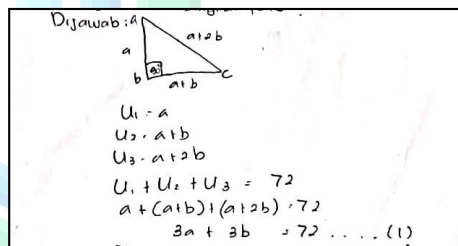 Dijawab : a
a+2b
a
90°
b
c
a+b
U₁ = a
U₂ = a+b
U₃ = a+2b
U₁ + U₂ + U₃ = 72
a + (a+b) + (a+2b) = 72
3a + 3b = 72 .... (1)